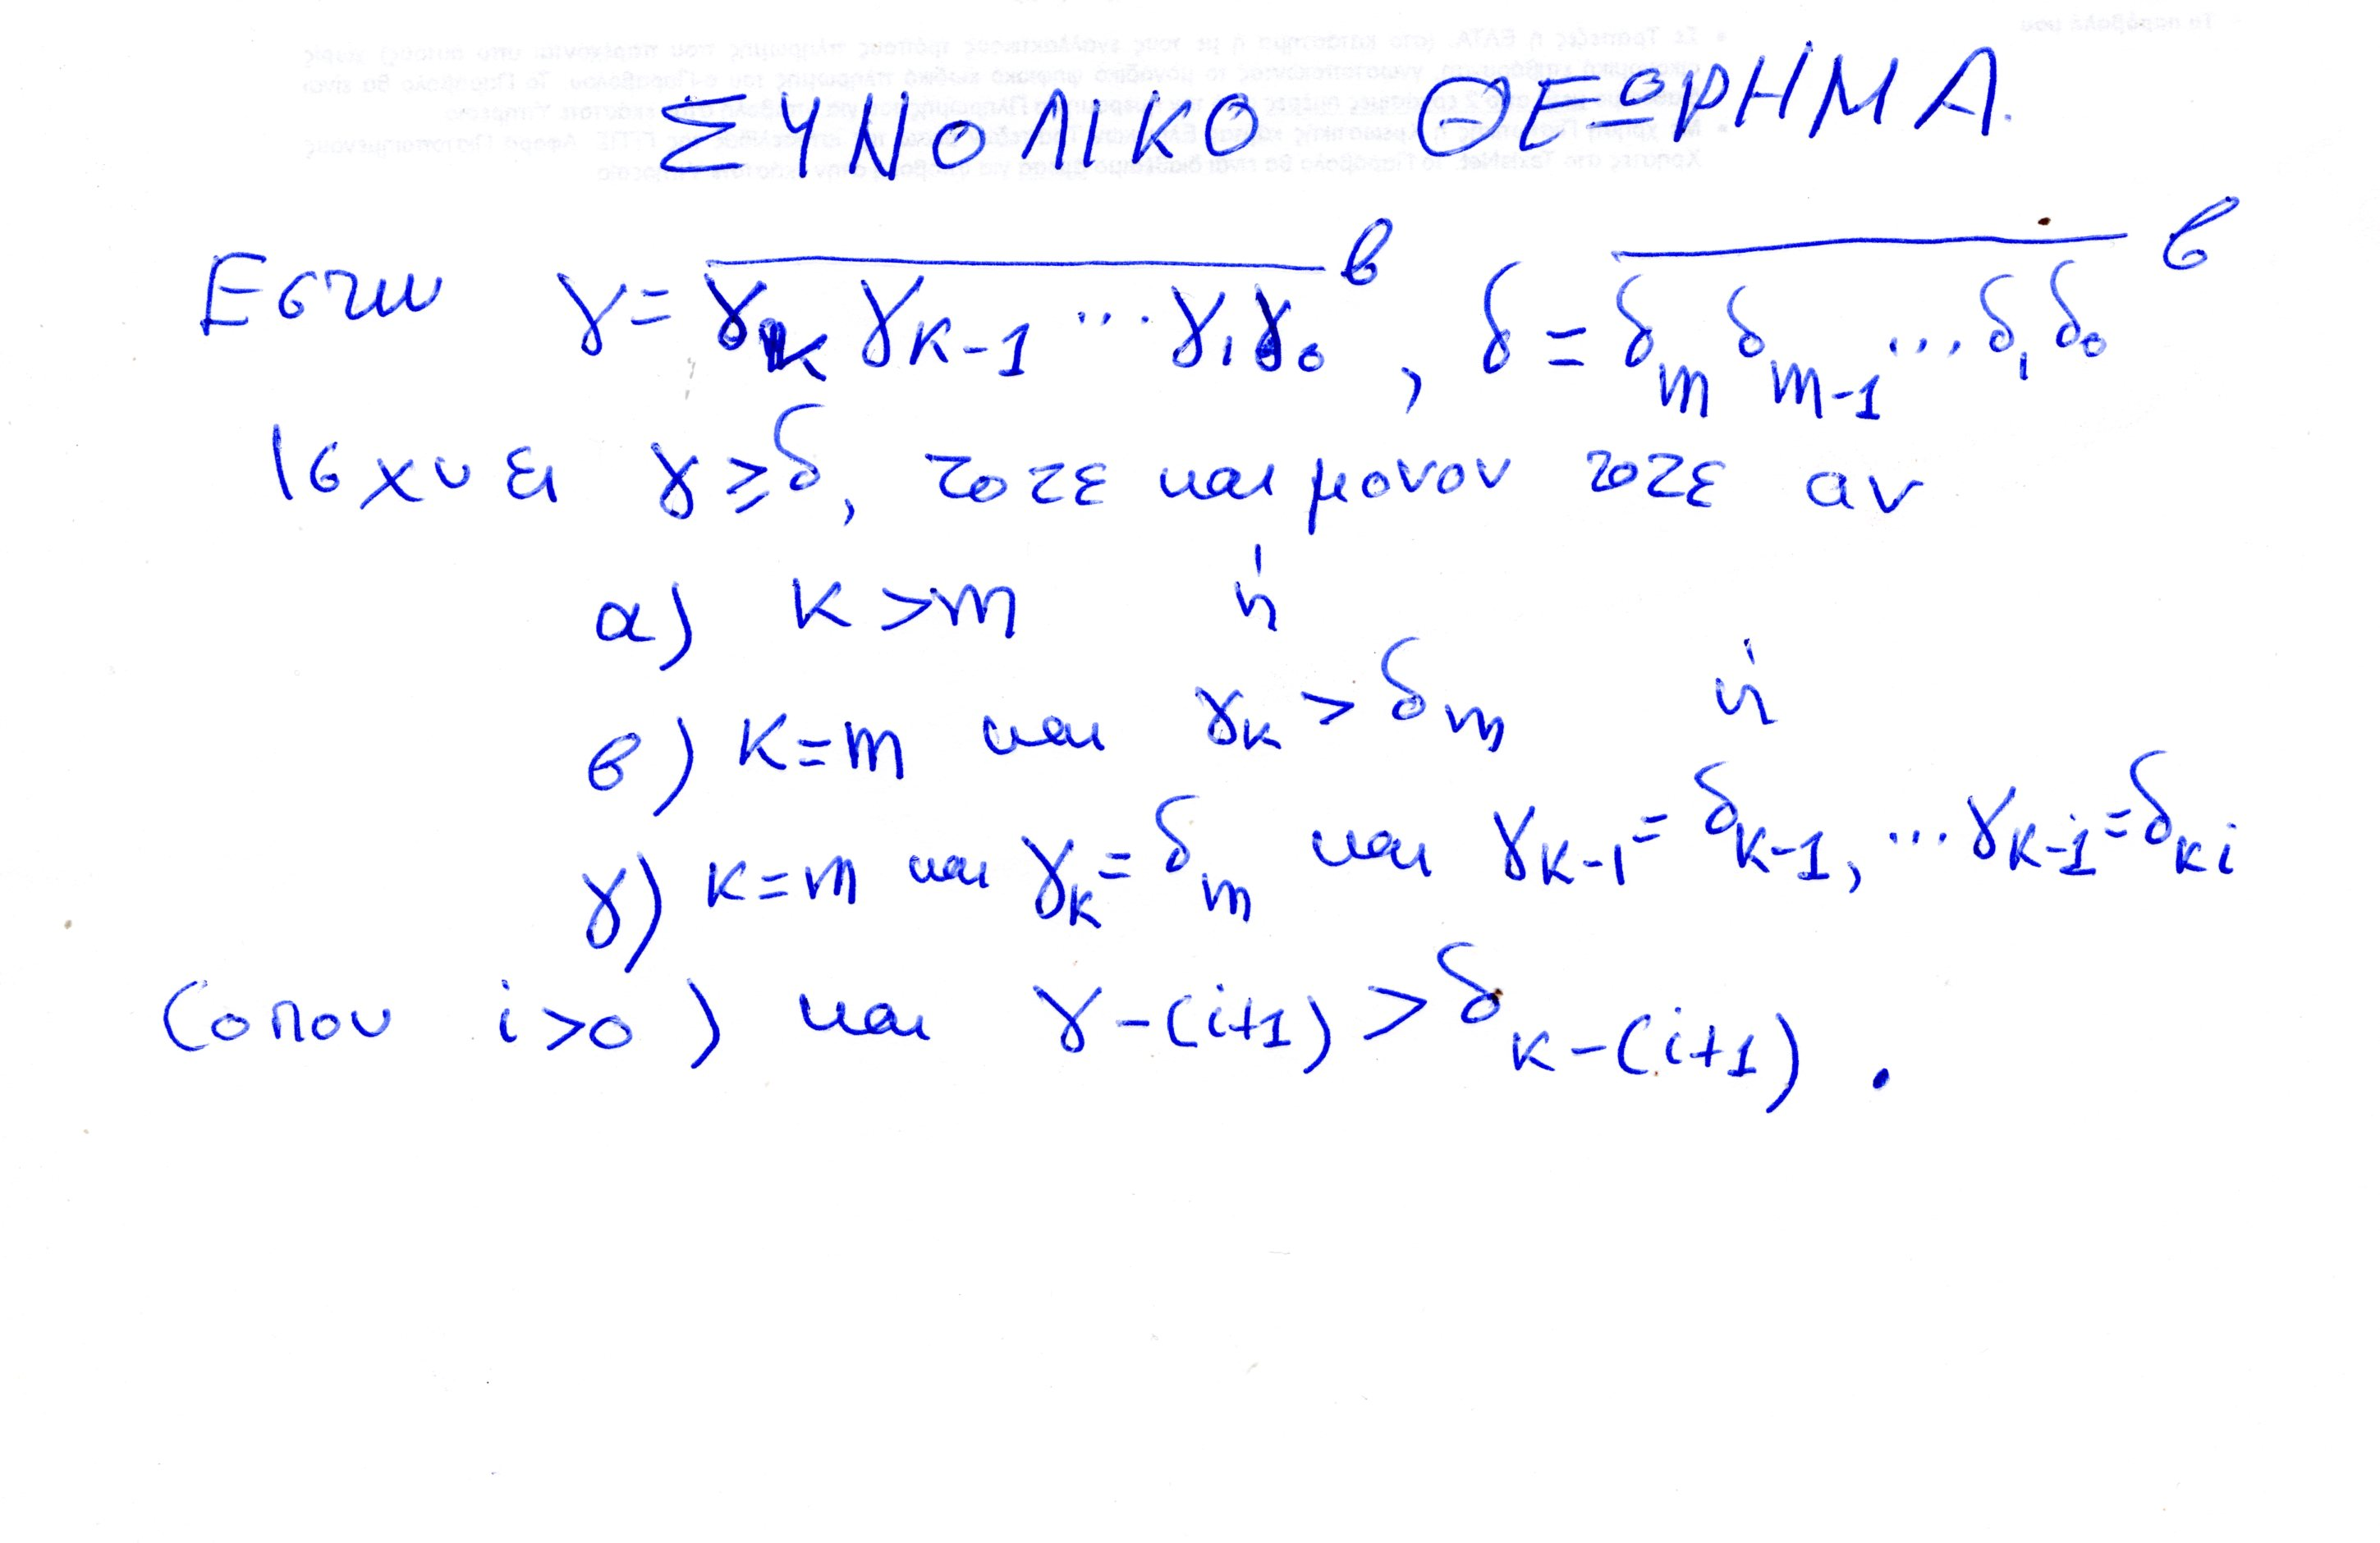 ΣΥΝΟΛΙΚΟ ΘΕΩΡΗΜΑ.
Εστω γ = γκ γκ-1 ... γ₁γ₀ β , δ = δm δm-1 ... δ₁δ₀ β
Ισχυει γ ≥ δ, τοτε και μονον τοτε αν
α) κ > m ή
β) κ = m και γκ > δm ή
γ) κ = m και γκ = δm και γκ-1 = δκ-1, ... γκ-i = δκi
(οπου i>0) και γ-(i+1) > δκ-(i+1).